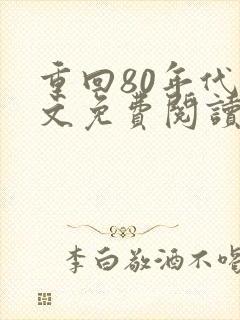 重回80年代
文免费閱讀
李白敬酒不喝